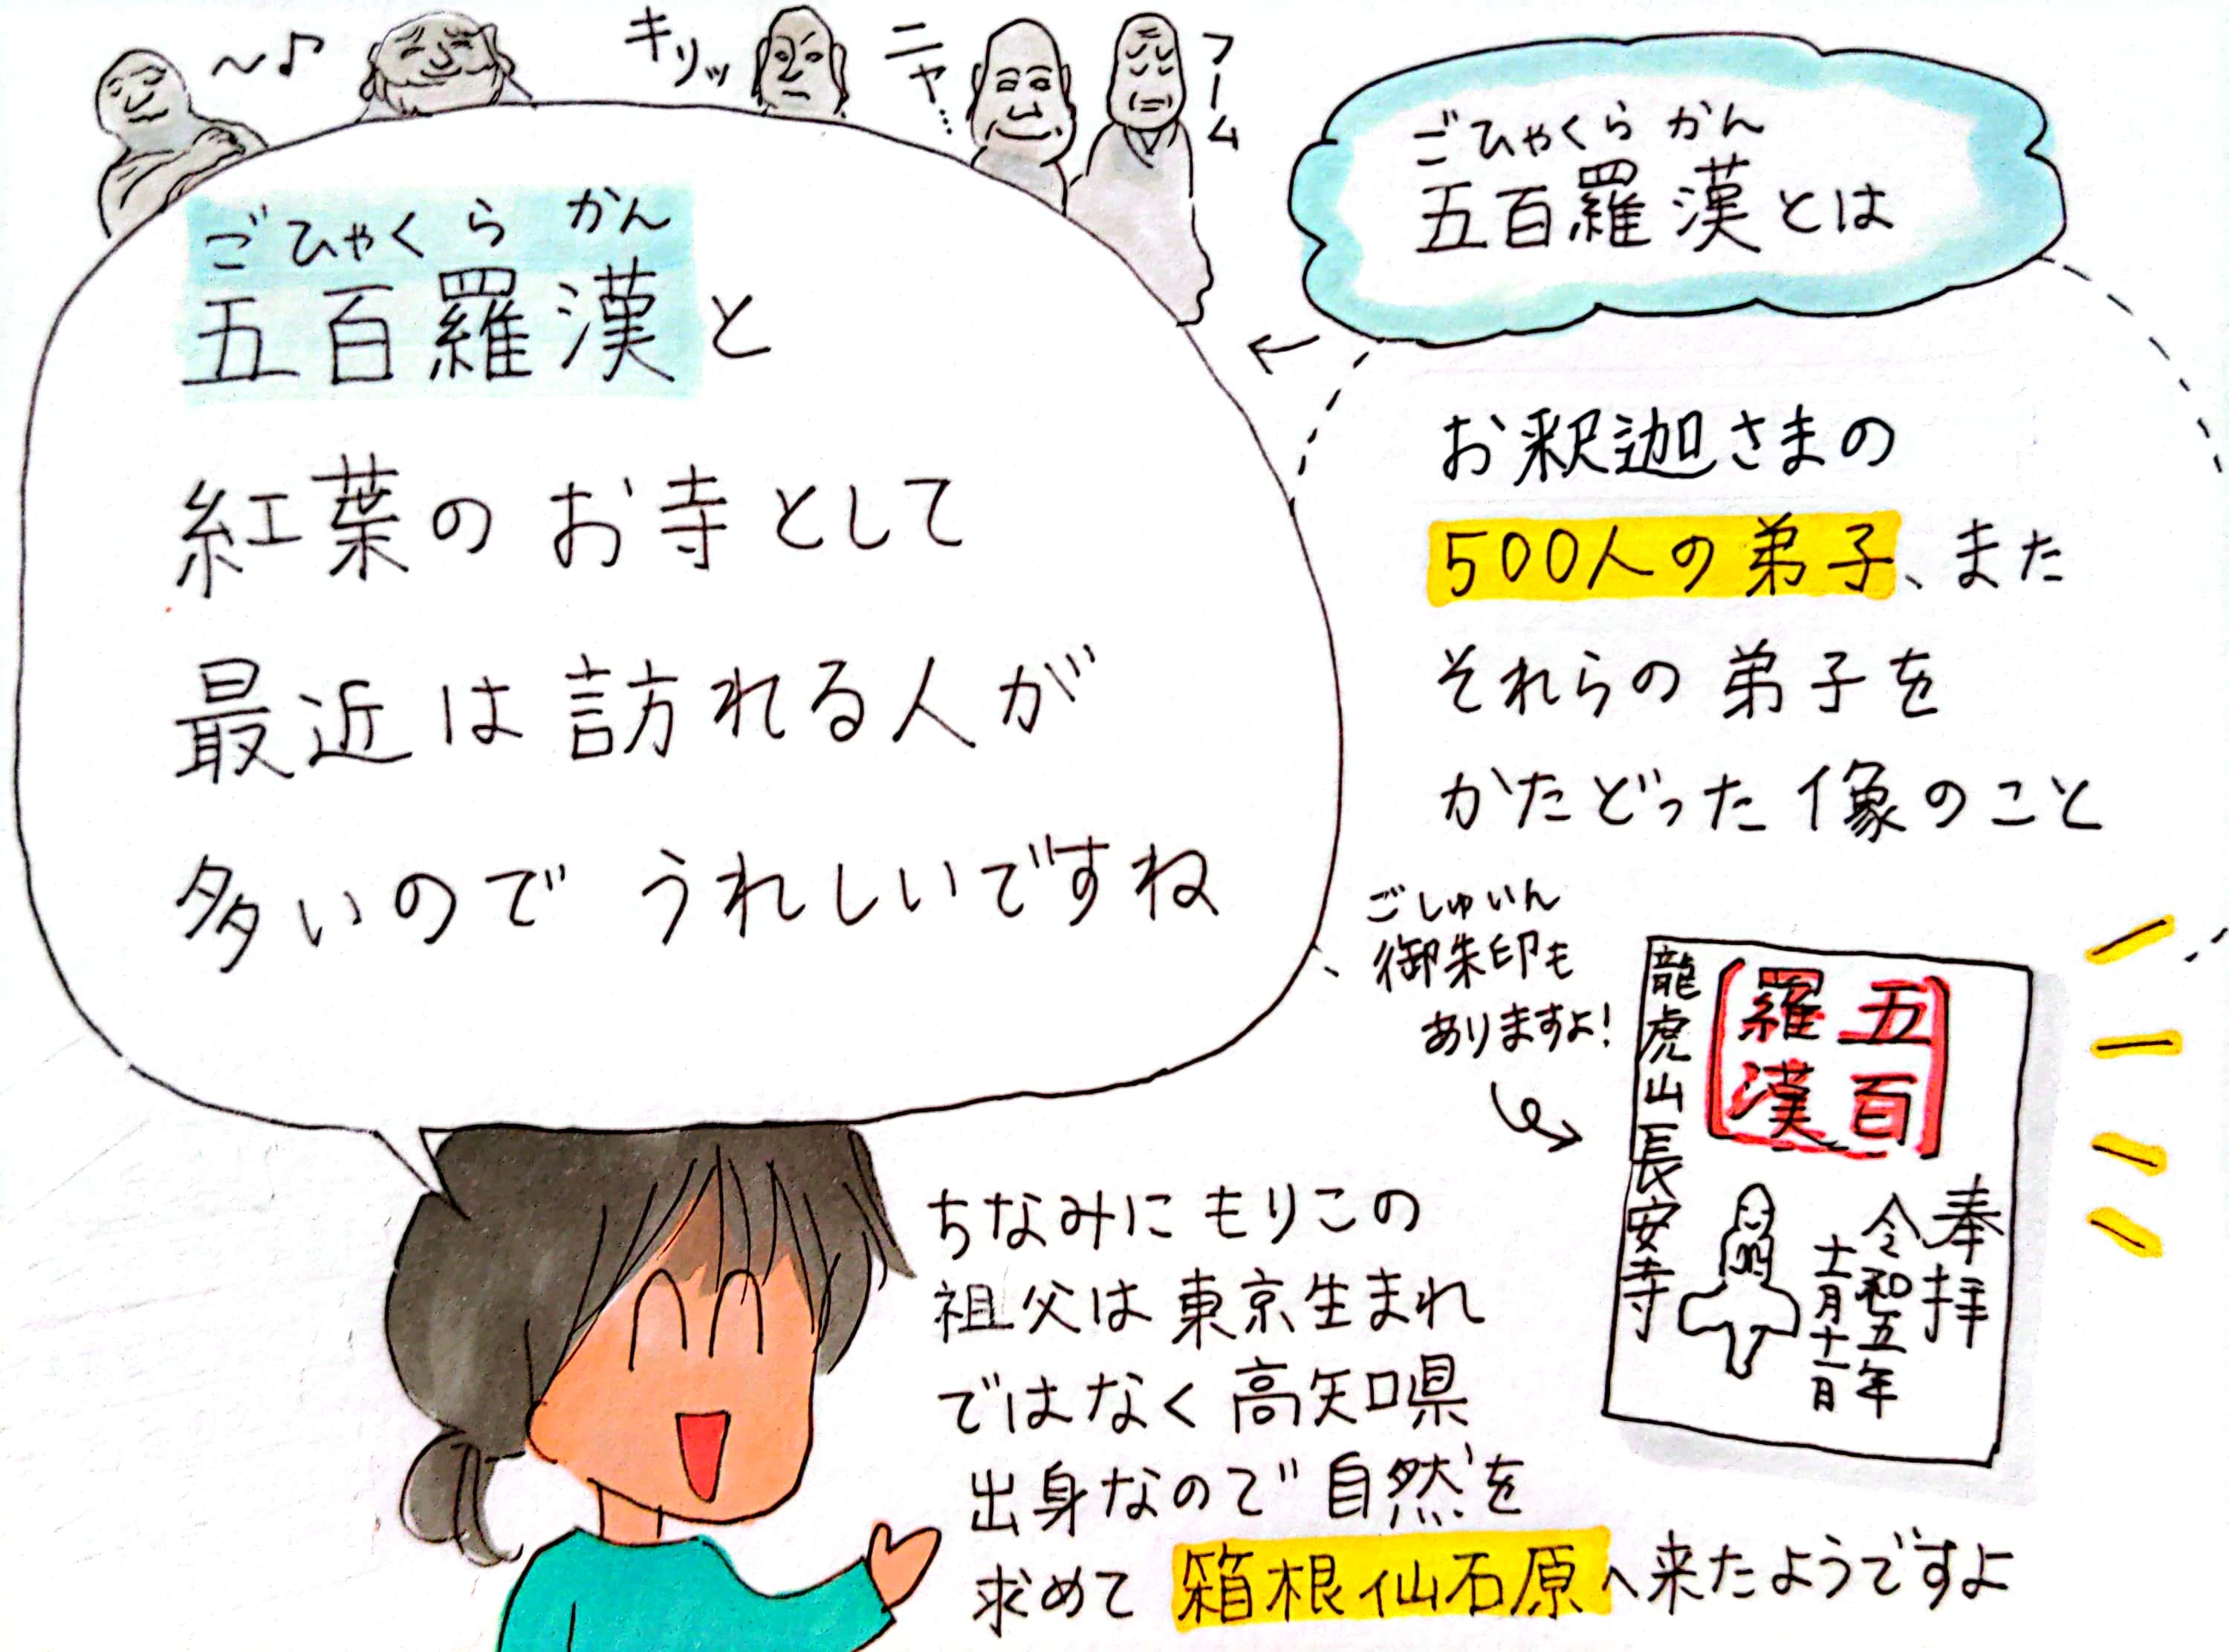 ～♪
キリッ
ニヤ…
フーム
ごひゃくらかん
五百羅漢と
紅葉のお寺として
最近は訪れる人が
多いのでうれしいですね
ごひゃくらかん
五百羅漢とは
←
お釈迦さまの
500人の弟子、また
それらの弟子を
かたどった像のこと
ごしゅいん
御朱印も
ありますよ!
奉拝
令和五年
十一月十一日
五百
羅漢
龍虎山長安寺
ちなみにもりこの
祖父は東京生まれ
ではなく高知県
出身なので自然を
求めて箱根仙石原へ来たようですよ